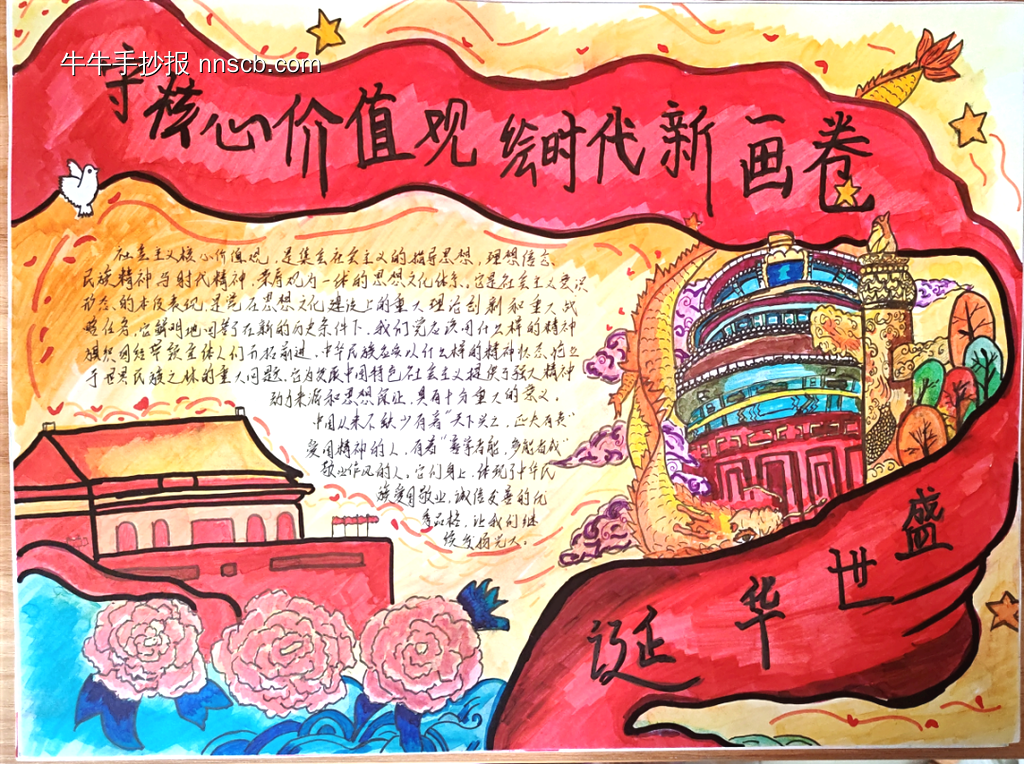 牛牛手抄报 nnscb.com
守核心价值观 绘时代新画卷
社会主义核心价值观,是集合社会主义的指导思想,理想信念
民族精神与时代精神,荣辱观为一体的思想文化体系,它是社会主义意识
形态的本质表现,是党在思想文化建设上的重大理论创新和重大战
略任务,它鲜明地回答了在新的历史条件下,我们党应该用什么样的精神
旗帜团结带领全体人们开拓前进,中华民族应以什么样的精神状态屹立
于世界民族之林的重大问题,它为发展中国特色社会主义提供了强大精神
动力来源和思想保证,具有十分重大的意义。
中国从来不缺少有着"天下兴亡,匹夫有责"
爱国精神的人,有着"善学者能,多能者成"
敬业作风的人,它们身上,体现了中华民
族爱国敬业,诚信友善的优
秀品格,让我们继
续发扬光大。
盛
世
华
诞